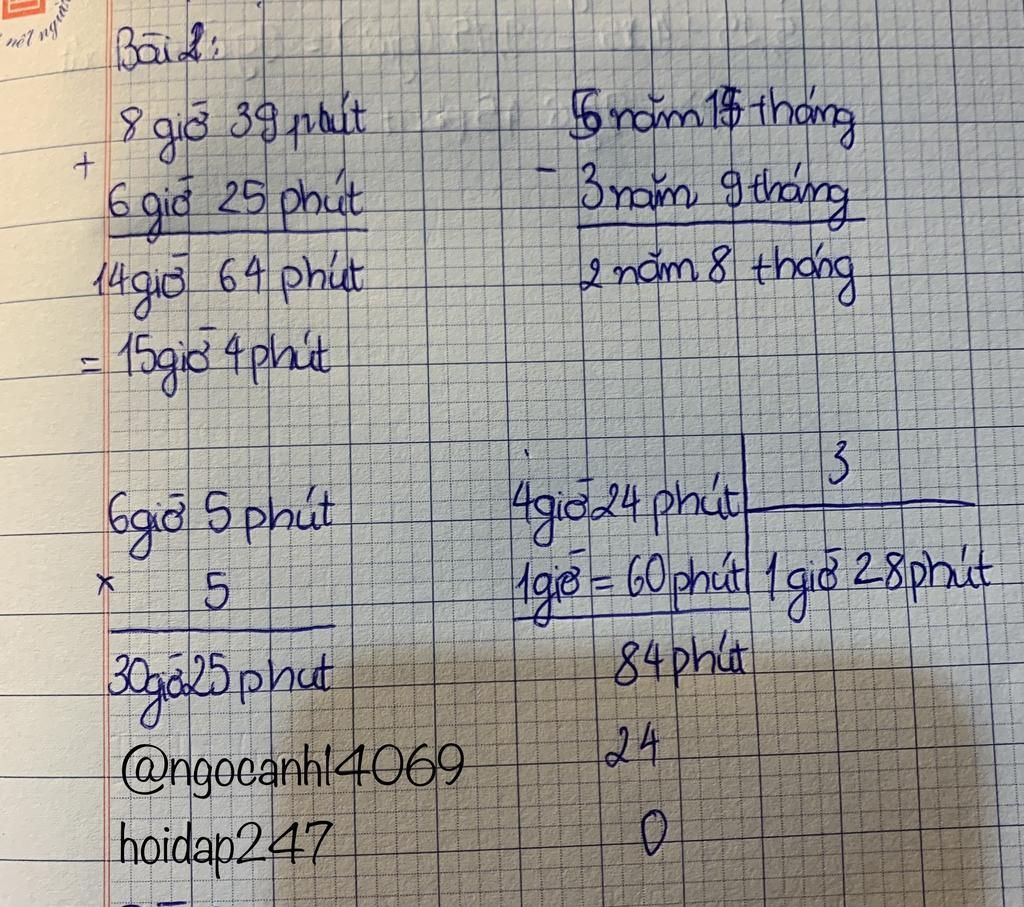 nét người
Bài 2:
8 giờ 39 phút
+
6 giờ 25 phút
14 giờ 64 phút
= 15 giờ 4 phút
5 năm 15 tháng
-
3 năm 9 tháng
2 năm 8 tháng
6 giờ 5 phút
x 5
30 giờ 25 phut
4 giờ 24 phút 3
1 giờ = 60 phút 1 giờ 28 phút
84 phút
24
0
@ngocanh14069
hoidap247